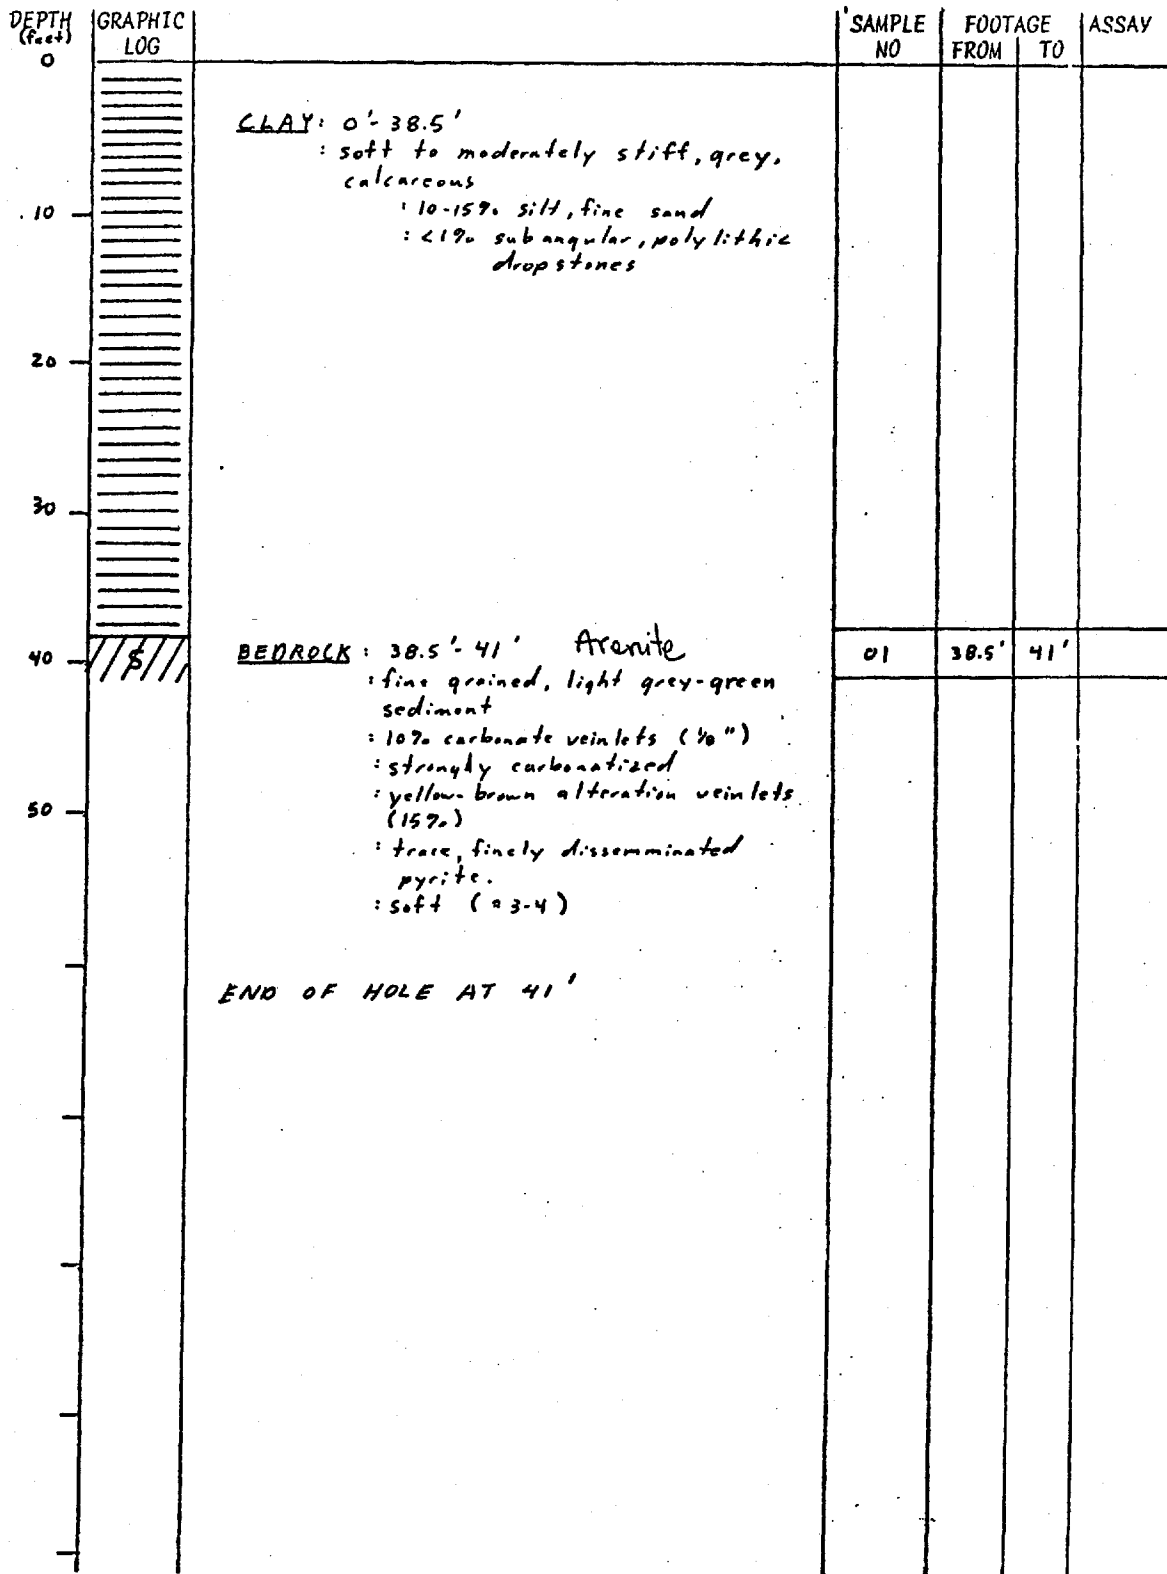 DEPTH GRAPHIC SAMPLE FOOTAGE ASSAY
(feet) LOG NO FROM TO
0
CLAY: 0'- 38.5'
: soft to moderately stiff, grey,
calcareous
10
: 10-15% silt, fine sand
: <1% subangular, polylithic
dropstones
20
30
40 $ BEDROCK: 38.5'- 41' Arenite 01 38.5' 41'
: fine grained, light grey-green
sediment
: 10% carbonate veinlets (1/8")
: strongly carbonatized
: yellow-brown alteration veinlets
50
(15%)
: trace, finely dissemminated
pyrite.
: soft (≈3-4)
END OF HOLE AT 41'